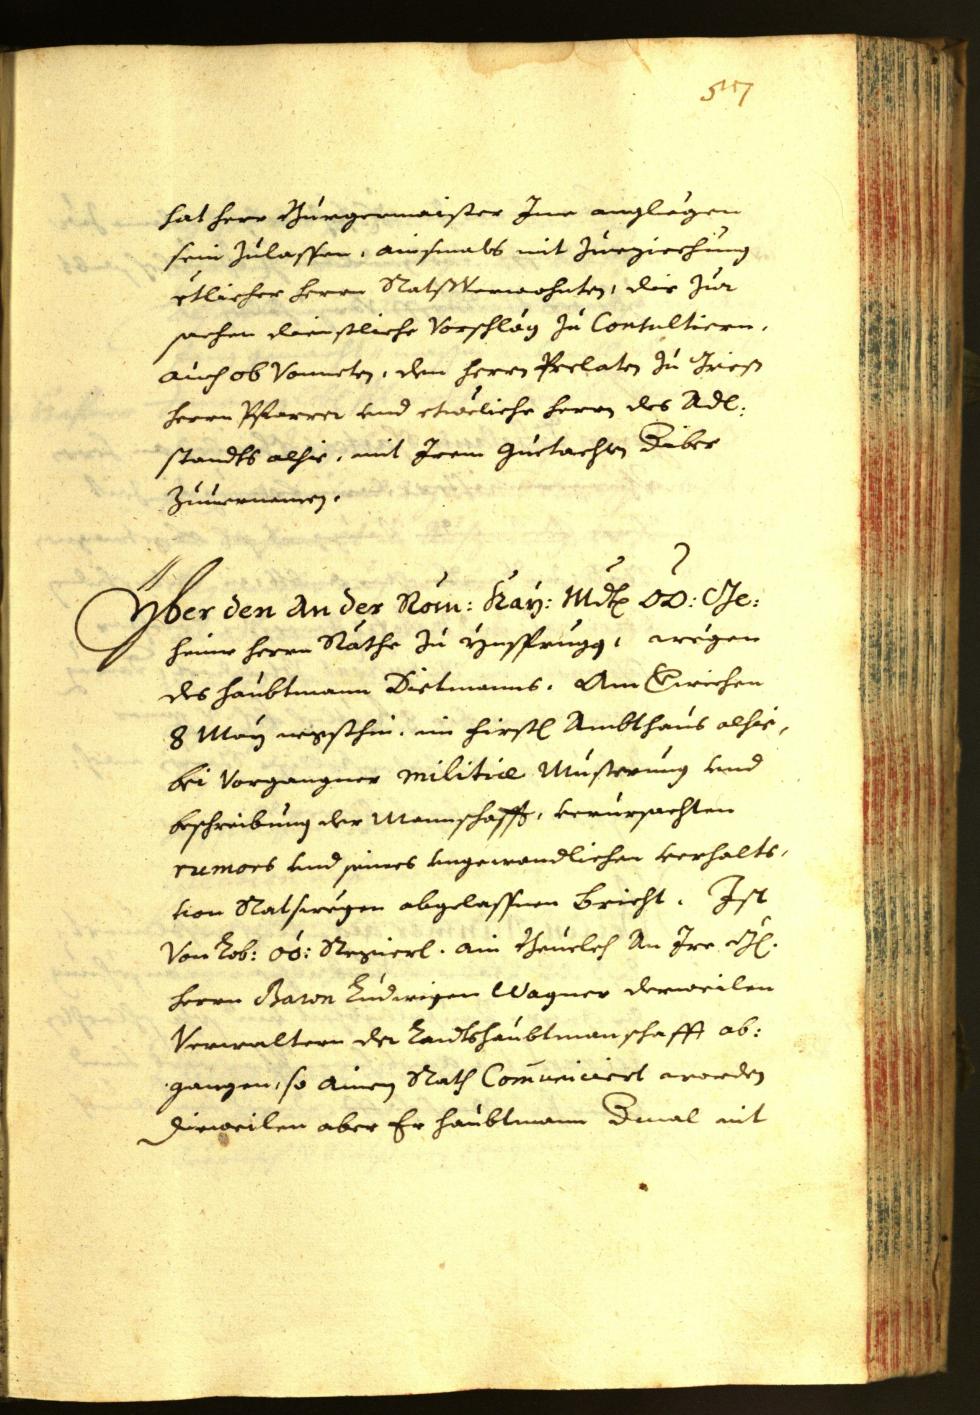 57
hat herr Burgermaister Ime angelegen
sein zulassen, ainsmals mit Zueziechung
etlicher herrn RatsVerwohnten, die zur
sachen dienstliche Vorschlög zu Consultiern,
auch ob Vonneten, den herrn Prelaten zu Griess
herrn Pfarrer und etweliche herrn des Adl:
standts alhie, mit Irem Guetachten
Zuvernemen.
Yber den an der Röm: Kay: Mdt OÖ: Ge:
heime herrn Räthe zu Ynsprugg, wegen
des haubtmann Dietmanns, Am
8 May negsthin, im firstl Ambthaus alhie,
bei Vorgangner militiae Musterung und
beschreibung der Mannschafft, verursachten
rumors und seines ungewondlichen verhalts,
von Ratswegen abgelassnen bricht. Ist
Von Lob: OÖ: Regierl. ain Bevelch An Ire
herrn Baron Ludwigen Wagner derweilen
Verwaltern der Landtshaubtmanschafft ab:
gangen, so ainem Rath Comuniciert worden
Dieweilen aber Er haubtmann mit